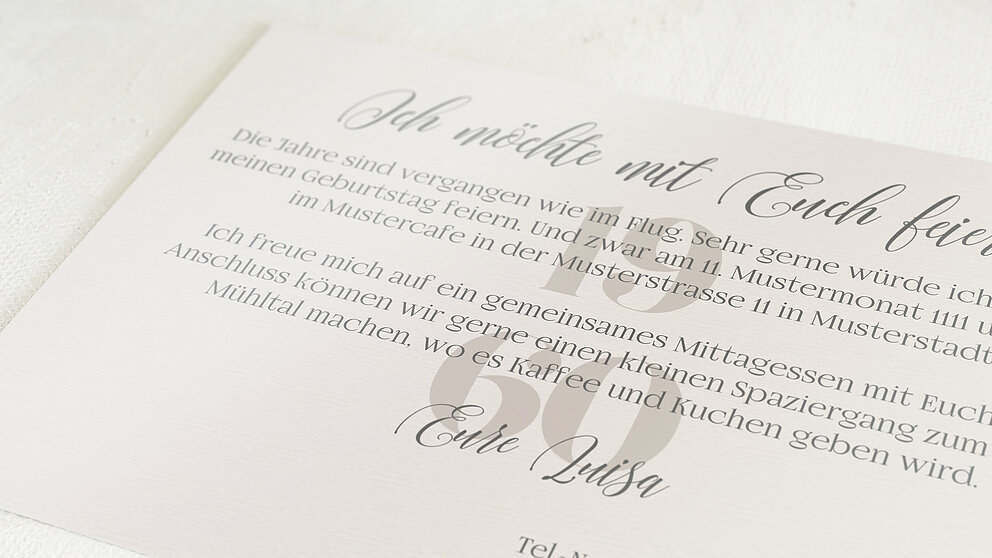 Ich möchte mit Euch feier
Die Jahre sind vergangen wie im Flug. Sehr gerne würde ich
meinen Geburtstag feiern. Und zwar am 11. Mustermonat 1111 u
im Mustercafe in der Musterstrasse 11 in Musterstadt
19
Ich freue mich auf ein gemeinsames Mittagessen mit Euch
Anschluss können wir gerne einen kleinen Spaziergang zum
Mühltal machen, wo es Kaffee und Kuchen geben wird.
60
Eure Luisa
Tel.-N